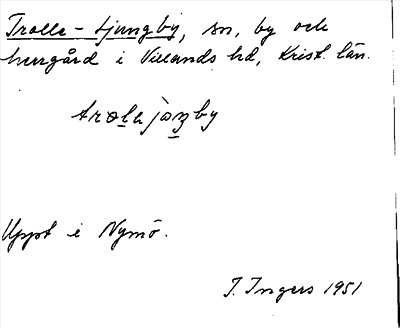 Trolle-Ljungby, sn, by och
herrgård i Villands hd, Krist. län.
Uppt i Nymö.
I. Ingers 1951